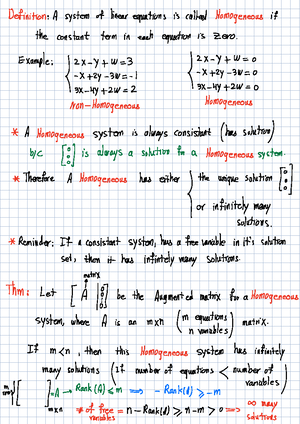 Definition: A system of linear equations is called Homogeneous if
the constant term in each equation is zero.
Example: { 2x - y + w = 3 { 2x - y + w = 0
-x + 2y - 3w = -1 -x + 2y - 3w = 0
3x - 4y + 2w = 2 3x - 4y + 2w = 0
non-Homogeneous Homogeneous
* A Homogeneous system is always consistant (has solution)
b/c [0 0 0] is always a solution for a Homogeneous system.
* Therefore A Homogeneous has either { the unique solution [0 0 0]
or infinitely many
solutions.
* Reminder: If a consistant system, has a free variable in it's solution
set, then it has infintely many solutions.
matrix
Thm: Let [A | 0 0 0] be the Augmented matrix for a Homogeneous
system, where A is an m×n (m equations n variables) matrix.
If m < n, then this Homogeneous system has infinitely
many solutions (If number of equations < number of variables)
m rows { [ ] = A → Rank(A) ≤ m ⟹ - Rank(A) ≥ -m
m×n # of free variables = n - Rank(A) ≥ n - m > 0 ⟹ ∞ many solutions